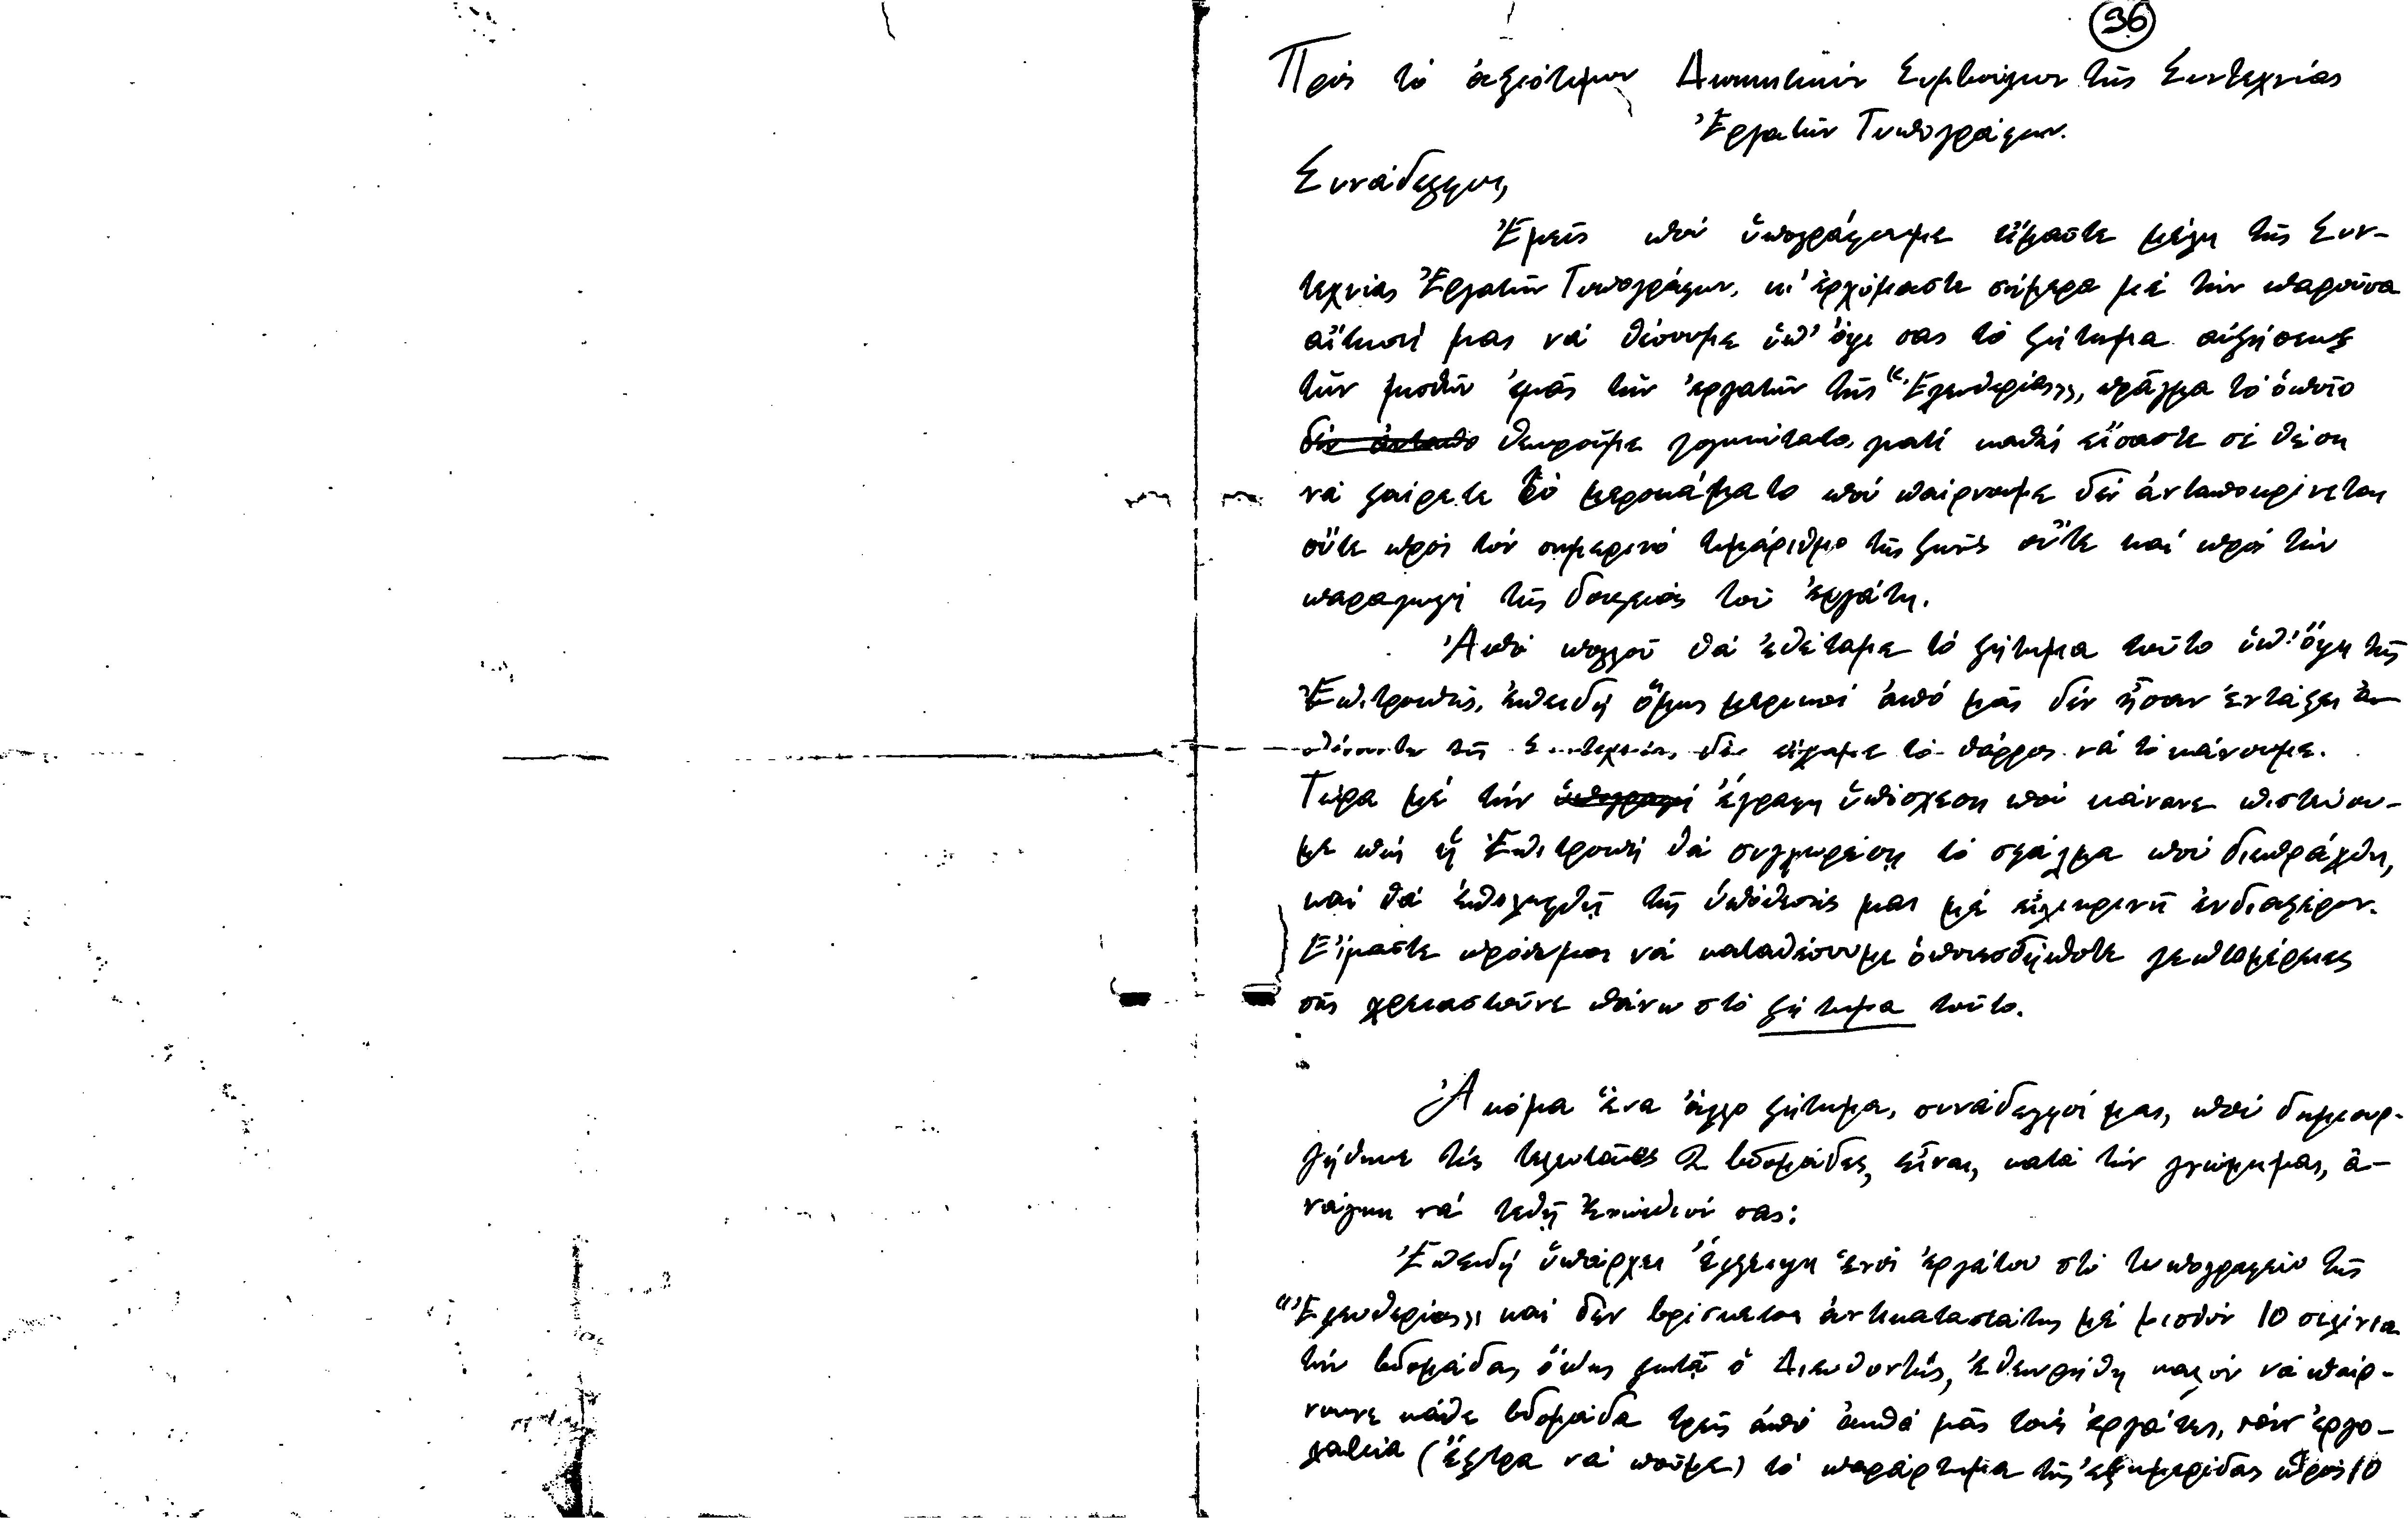 36
Πρός τό ἀξιότιμον Διοικητικόν Συμβούλιον τῆς Συντεχνίας
Ἐργατῶν Τυπογράφων.
Συνάδελφοι,
Ἐμεῖς πού ὑπογράφουμε εἴμαστε μέλη τῆς Συν-
τεχνίας Ἐργατῶν Τυπογράφων, κι' ἐρχόμαστε σήμερα μέ τήν παροῦσα
αἴτησή μας νά θέσουμε ὑπ' ὄψι σας τό ζήτημα αὐξήσεως
τῶν μισθῶν ἐμᾶς τῶν ἐργατῶν τῆς "Ἐλευθερίας", πράγμα τό ὁποῖο
θεωροῦμε λογικώτατο, γιατί καθώς εἴσαστε σέ θέση
νά ξαίρετε τό μεροκάματο πού παίρνουμε δέν ἀνταποκρίνεται
οὔτε πρός τόν σημερινό τιμάριθμο τῆς ζωῆς οὔτε καί πρός τήν
παραγωγή τῆς δουλειᾶς τοῦ ἐργάτη.
Ἀπό πολλοῦ θά ἐθέταμε τό ζήτημα τοῦτο ὑπ' ὄψη τῆς
Ἐπιτροπῆς, ἐπειδή ὅμως μερικοί ἀπό μᾶς δέν ἦσαν ἐντάξει
τῆς Συντεχνίας, δέν εἴχαμε τό θάρρος νά τό κάνουμε.
Τώρα μέ τήν ὑπογραφή ἔγραφη ὑπόσχεση πού κάνανε πιστεύου-
με πώς ἡ Ἐπιτροπή θά συγχωρέση τό σφάλμα πού διεπράχθη,
καί θά ἐπιληφθῆ τῆς ὑπόθεσής μας μέ εἰλικρινῆ ἐνδιαφέρον.
Εἴμαστε πρόθυμοι νά καταθέσουμε ὁποιεσδήποτε λεπτομέρειες
σᾶς χρειαστοῦνε πάνω στό ζήτημα τοῦτο.
Ἀκόμα ἕνα ἄλλο ζήτημα, συνάδελφοί μας, πού δημιουρ-
γήθηκε τίς τελευταῖες 2 βδομάδες, εἶναι, κατά τήν γνώμη μας, ἀ-
νάγκη νά τεθῆ ἐνώπιόν σας:
Ἐπειδή ὑπάρχει ἔλλειψη ἑνός ἐργάτου στό τυπογραφεῖο τῆς
"Ἐλευθερίας" καί δέν βρίσκεται ἀντικαταστάτης μέ μισθόν 10 σελίνια
τήν βδομάδα, ὅπως ζητᾶ ὁ Διευθυντής, ἐθεωρήθη καλόν νά παίρ-
νουνε κάθε βδομάδα τρεῖς ἀπό μᾶς τούς ἐργάτες, ἐργο-
λαβεία (ἔξτρα νά ποῦμε) τό παράρτημα τῆς ἐφημερίδας πρός 10